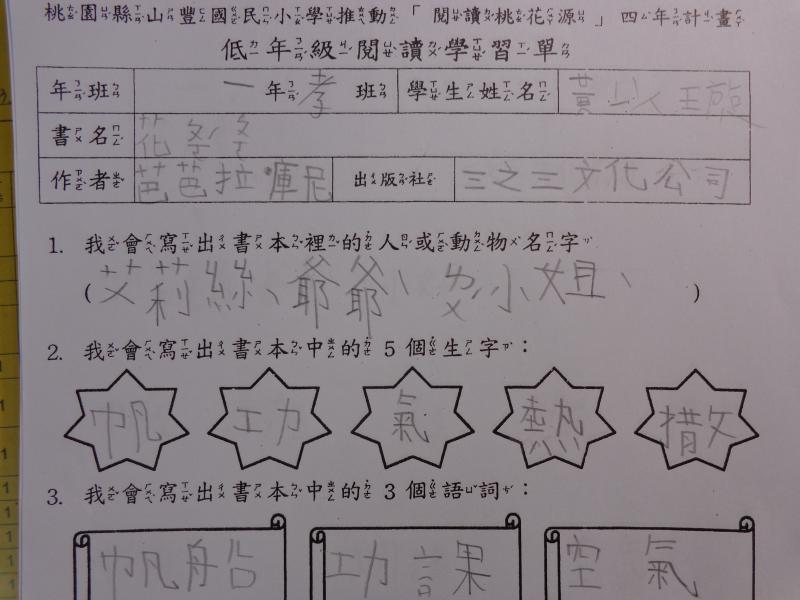 桃園縣山豐國民小學推動「閱讀桃花源」四年計畫
低年級閱讀學習單
年班 一年孝班 學生姓名 黃
書名 花ㄆㄛˊㄆㄛ˙
作者 芭芭拉·庫尼 出版社 三之三文化公司
1. 我會寫出書本裡的人或動物名字
(艾莉絲、爺爺、ㄆㄛˊ小姐、 )
2. 我會寫出書本中的 5 個生字：
帆 功 氣 熱 撒
3. 我會寫出書本中的 3 個語詞：
帆船 功課 空氣